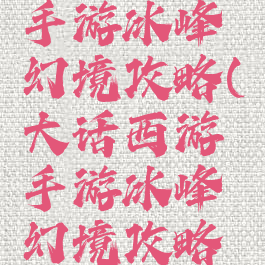 手游冰峰
幻境攻略(
大话西游
手游冰峰
幻境攻略